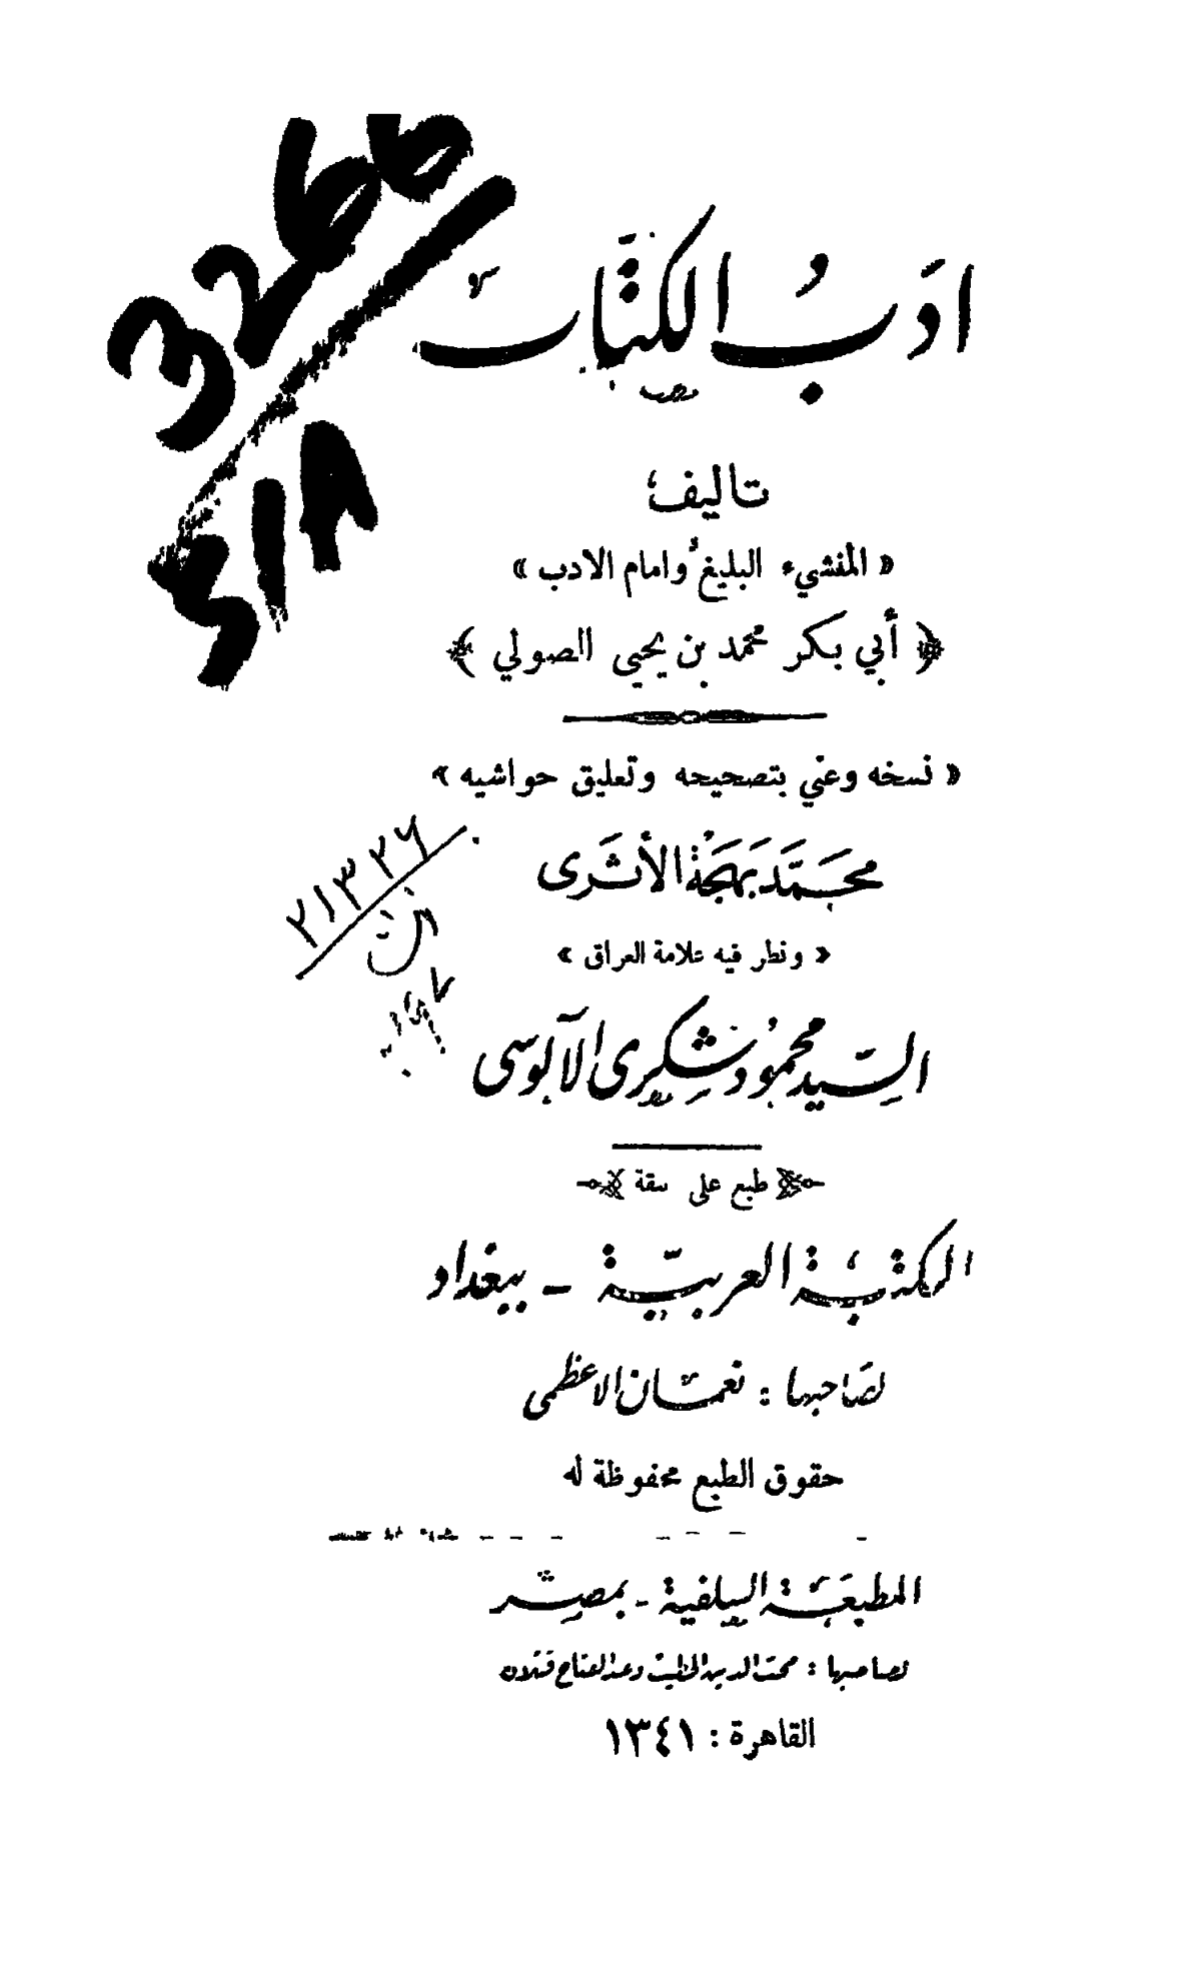 3266
518
ادَبُ الكتّاب
تاليف
« المنشيء البليغ وامام الادب »
﴿ أبي بكر محمد بن يحيى الصولي ﴾
« نسخه وعني بتصحيحه وتعليق حواشيه »
محمّد بهجة الأثرى
٢١٣٢٦
« ونظر فيه علامة العراق »
السّيد محمود شكرى الآلوسى
طبع على نفقة
المكتبة العربيّة - ببغداد
لصاحبها : نعمان الاعظمى
حقوق الطبع محفوظة له
المطبعة السلفية - بمصر
لصاحبها : محب الدين الخطيب وعبد الفتاح قتلان
القاهرة : ١٣٤١